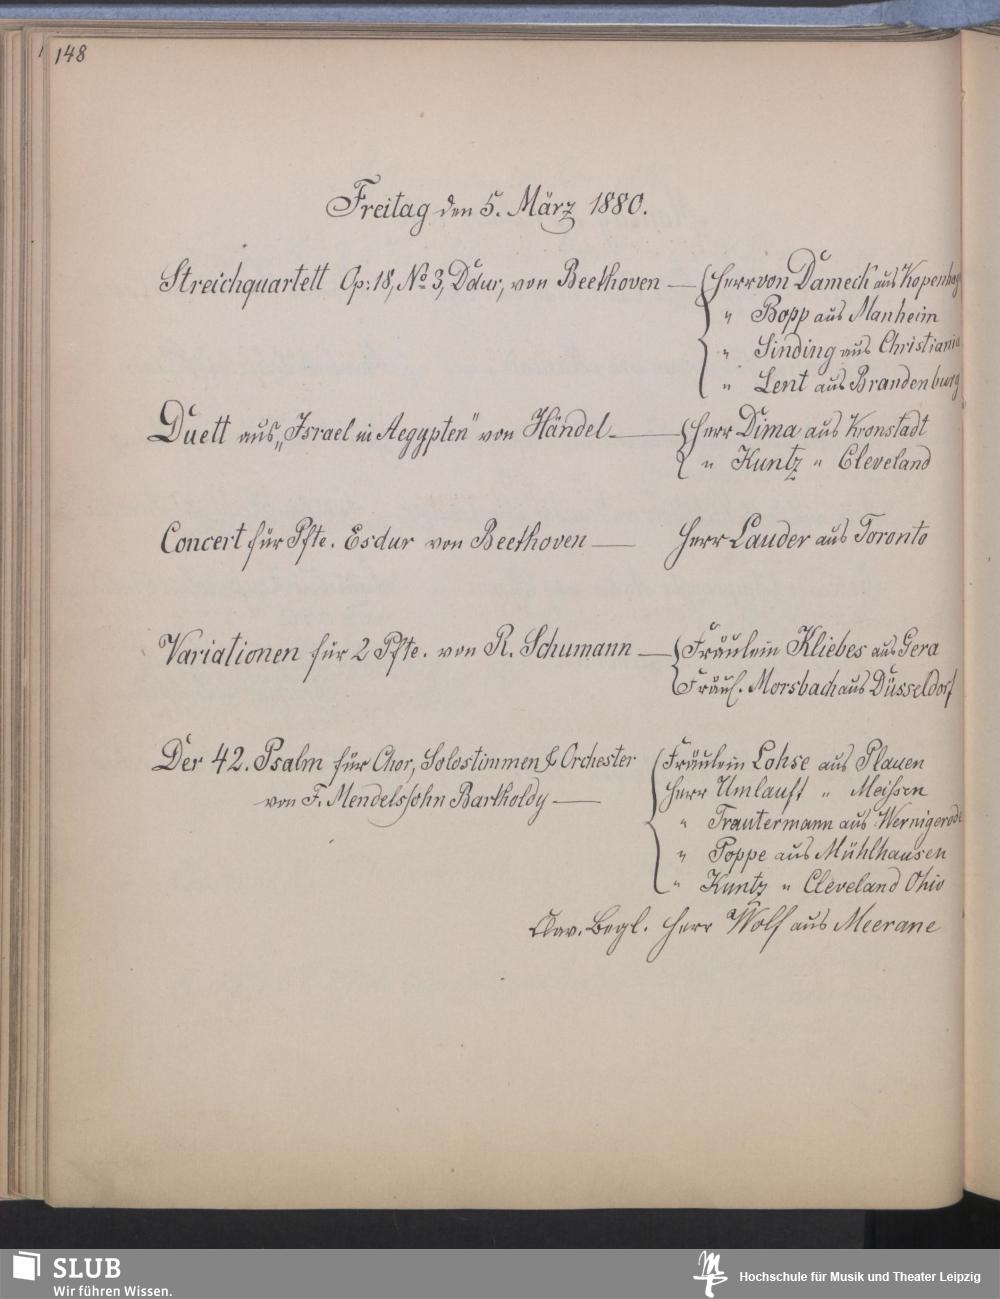 148
Freitag den 5. März 1880.
Streichquartett Op: 18, No 3, Ddur, von Beethoven — Herr von Dameck aus Kopenhag
" Bopp aus Manheim
" Sinding aus Christiania
" Lent aus Brandenburg
Duett aus „Israel in Aegypten" von Händel — Herr Dima aus Kronstadt
" Kuntz " Cleveland
Concert für Pfte. Esdur von Beethoven — Herr Lauder aus Toronto
Variationen für 2 Pfte. von R. Schumann — Fräulein Kliebes aus Gera
Fräul. Morsbach aus Düsseldorf
Der 42. Psalm für Chor, Solostimmen & Orchester Fräulein Lohse aus Plauen
von F. Mendelssohn Bartholdy — Herr Umlauft " Meißen
" Trautermann aus Wernigerode
" Poppe aus Mühlhausen
" Kuntz " Cleveland Ohio
Clav. Begl. Herr Wolf aus Meerane
SLUB
Wir führen Wissen.
Hochschule für Musik und Theater Leipzig